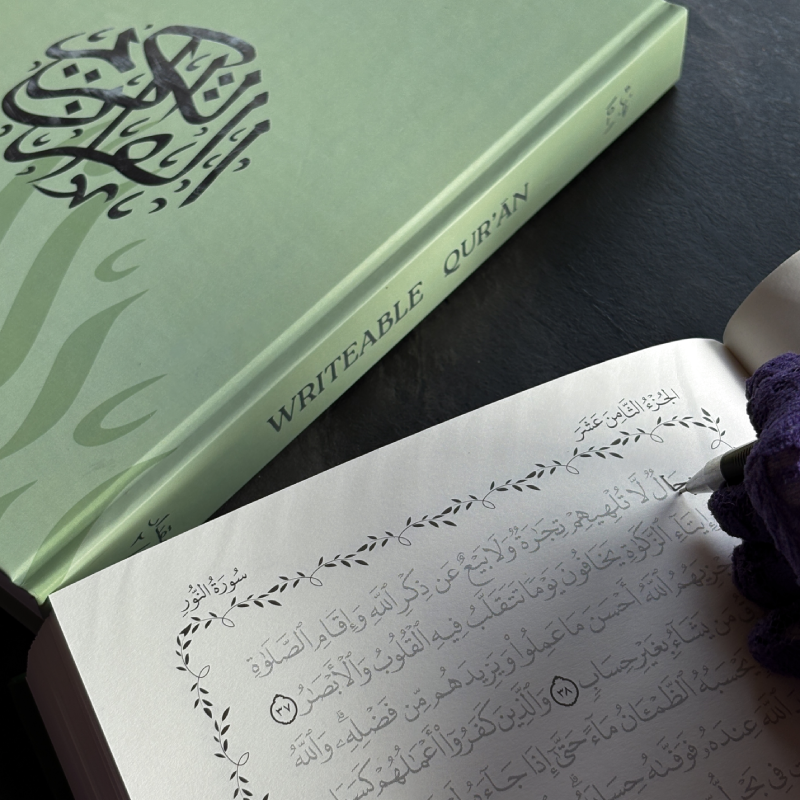 القرآن الكريم
WRITEABLE QUR'ĀN
الجُزْءُ الثَّامِنَ عَشَرَ
سُورَةُ النُّورِ
جَالٌ لَّا تُلْهِيهِمْ تِجَٰرَةٌ وَلَا بَيْعٌ عَن ذِكْرِ ٱللَّهِ وَإِقَامِ ٱلصَّلَوٰةِ
إِيتَآءِ ٱلزَّكَوٰةِ يَخَافُونَ يَوْمًا تَتَقَلَّبُ فِيهِ ٱلْقُلُوبُ وَٱلْأَبْصَٰرُ ٣٧
جْزِيَهُمُ ٱللَّهُ أَحْسَنَ مَا عَمِلُوا۟ وَيَزِيدَهُم مِّن فَضْلِهِۦۗ وَٱللَّهُ
مَن يَشَآءُ بِغَيْرِ حِسَابٍ ٣٨ وَٱلَّذِينَ كَفَرُوٓا۟ أَعْمَٰلُهُمْ كَسَرَا
يَحْسَبُهُ ٱلظَّمْـَٔانُ مَآءً حَتَّىٰٓ إِذَا جَآءَهُۥ
ٱللَّهَ عِندَهُۥ فَوَفَّىٰهُ حِسَابَهُ
فِى بَحْرٍ